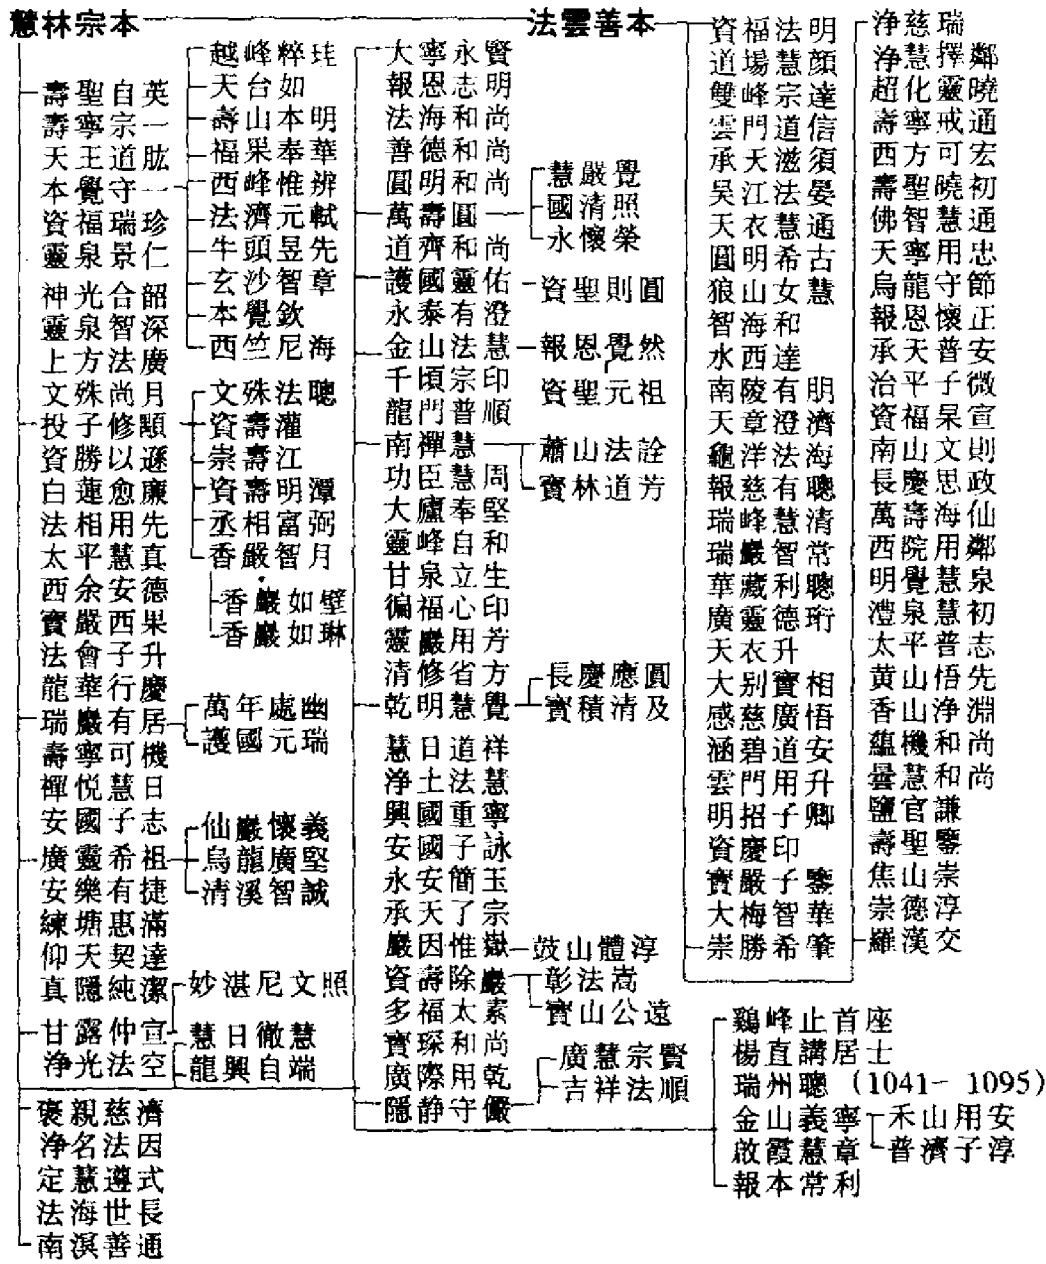 慧林宗本
法雲善本
壽聖自英
壽寧宗一
天王道肱
本覺守一
資福瑞珍
靈泉景仁
神光合韶
靈泉智深
上方法廣
文殊尚月
投子修顒
資勝以遜
白蓮愈廉
法相用先
太平慧真
西余安德
寶嚴西果
法會子升
龍華行慶
瑞巖有居
壽寧可機
禪悦慧日
安國子志
廣靈希祖
安樂有捷
練塘惠滿
仰天契達
真隱純潔
甘露仲宣
淨光法空
褒親慈濟
净名法因
定慧遵式
法海世長
南溟善通
越峰粹珪
天台如
壽山本明
福杲奉華
西峰惟辨
法濟元軾
牛頭昱先
玄沙智章
本覺欽
西竺尼海
文殊法聰
資壽灌
崇壽江
資壽明潭
丞相富弼
香嚴智月
香巖如璧
香巖如琳
萬年處幽
護國元瑞
仙巖懷義
烏龍廣堅
清溪智誠
妙湛尼文照
慧日徹慧
龍興自端
大寧永賢
報恩志明
法海和尚
善德和尚
圓明和尚
萬壽圓
道齊和尚
護國靈佑
永泰有澄
金山法慧
千頃宗印
龍門普順
南禪慧
功臣慧周
大廬奉堅
靈峰自和
甘泉立生
徧福心印
靈巖用芳
清修省方
乾明慧覺
慧日道祥
净土法慧
興國重寧
安國子詠
永安簡玉
承天了宗
嚴因惟嶽
資壽除巖
多福太素
寶琛和尚
廣際用乾
隱静守儼
慧嚴覺
國清照
永懷榮
資聖則圓
報恩覺然
資聖元祖
蕭山法詮
寶林道芳
長慶應圓
寶積清及
鼓山體淳
彰法嵩
寶山公遠
廣慧宗賢
吉祥法順
資福法明
道場慧顏
雙峰宗達
雲門道信
承天滋須
吴江法晏
天衣慧通
圓明希古
狼山女慧
智海和
水西達
南陵有朋
天章澄濟
龜洋法海
報慈有聰
瑞峰慧清
瑞巖智常
華藏利聰
廣靈德珩
天衣升
大别寶相
感慈廣悟
涵碧道安
雲門用升
明招子卿
資慶印
寶嚴子鑒
大梅智華
崇勝希肇
浄慈瑞
净慧擇鄰
超化靈曉
壽寧戒通
西方可宏
壽聖曉初
佛智慧通
天寧用忠
烏龍守節
報恩懷正
承天普安
治平子微
資福杲宣
南山文則
長慶思政
萬壽海仙
西院用鄰
明覺慧泉
澧泉慧初
太平普志
黄山悟先
香山浄淵
蘊機和尚
曇慧和尚
鹽官謙
壽聖鑒
焦山崇
崇德淳
羅漢交
鷄峰止首座
楊直講居士
瑞州聰 (1041- 1095)
金山義寧
啟霞慧章
報本常利
禾山用安
普濟子淳